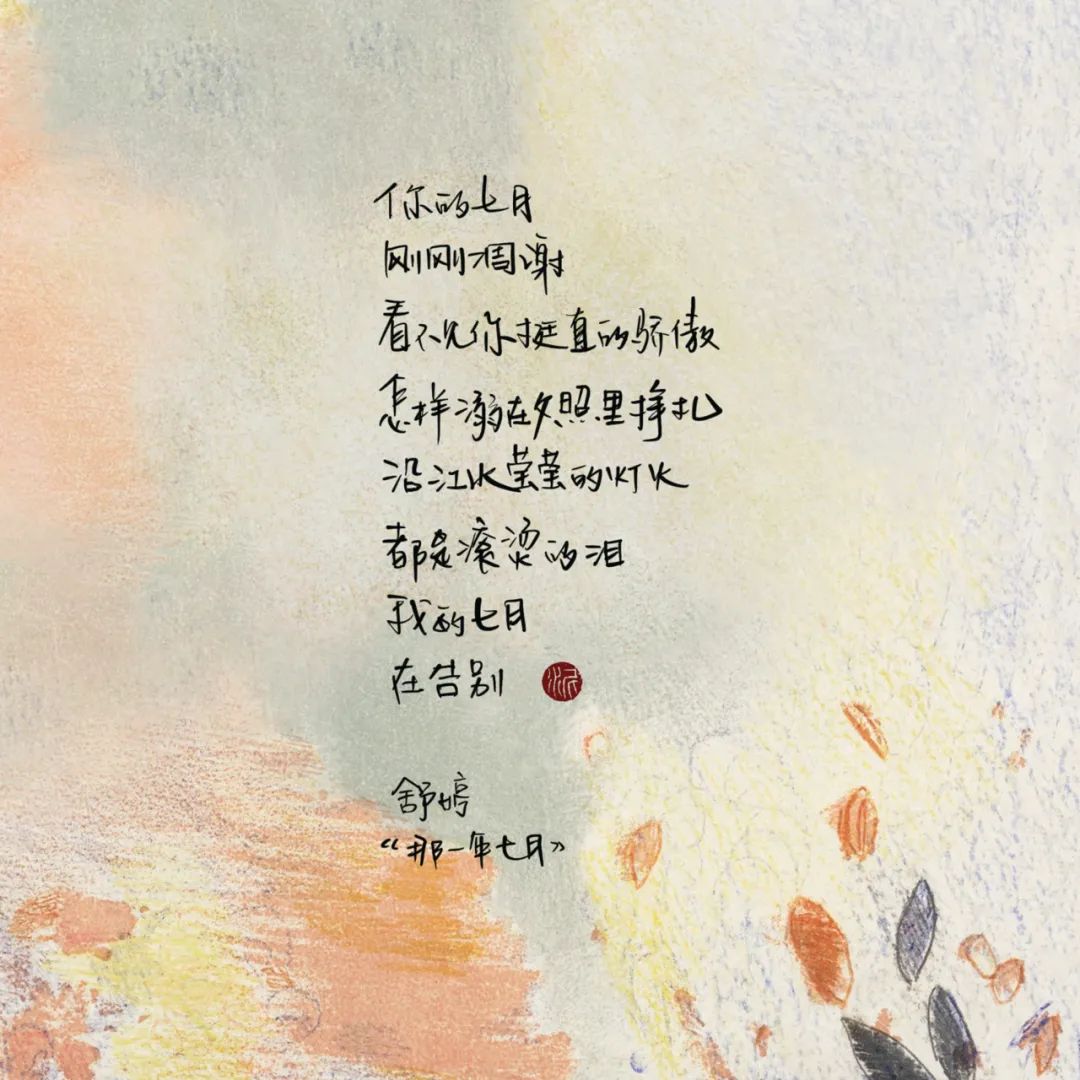 你的七月
刚刚凋谢
看不见你挺直的骄傲
怎样溺在夕照里挣扎
沿江水莹莹的灯火
都是滚烫的泪
我的七月
在告别
舒婷
《那一年七月》